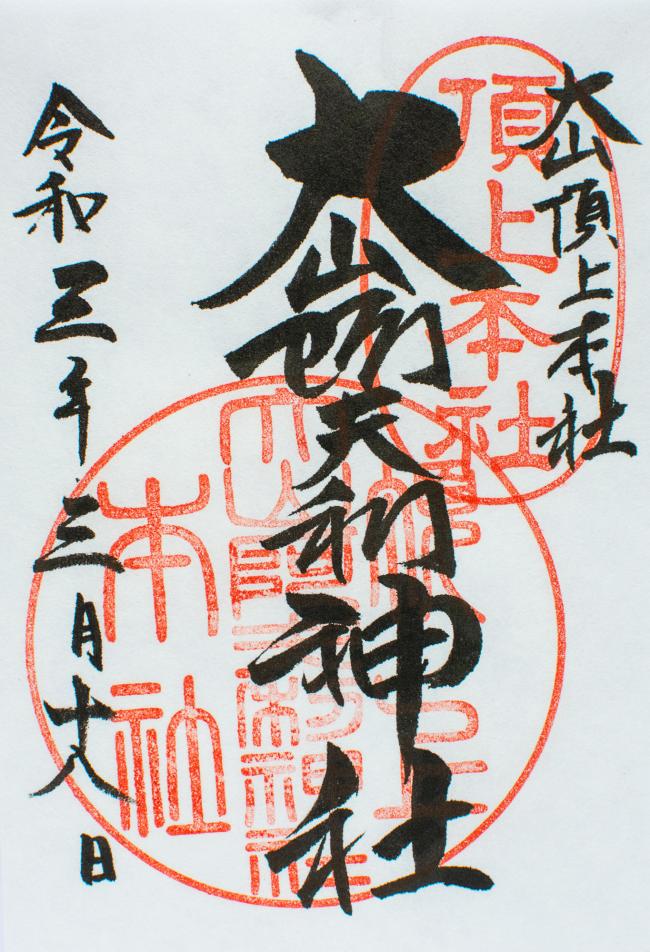 大山頂上本社
頂上本社
大山阿夫利神社
大山阿夫利神社
本社
令和三年三月十八日